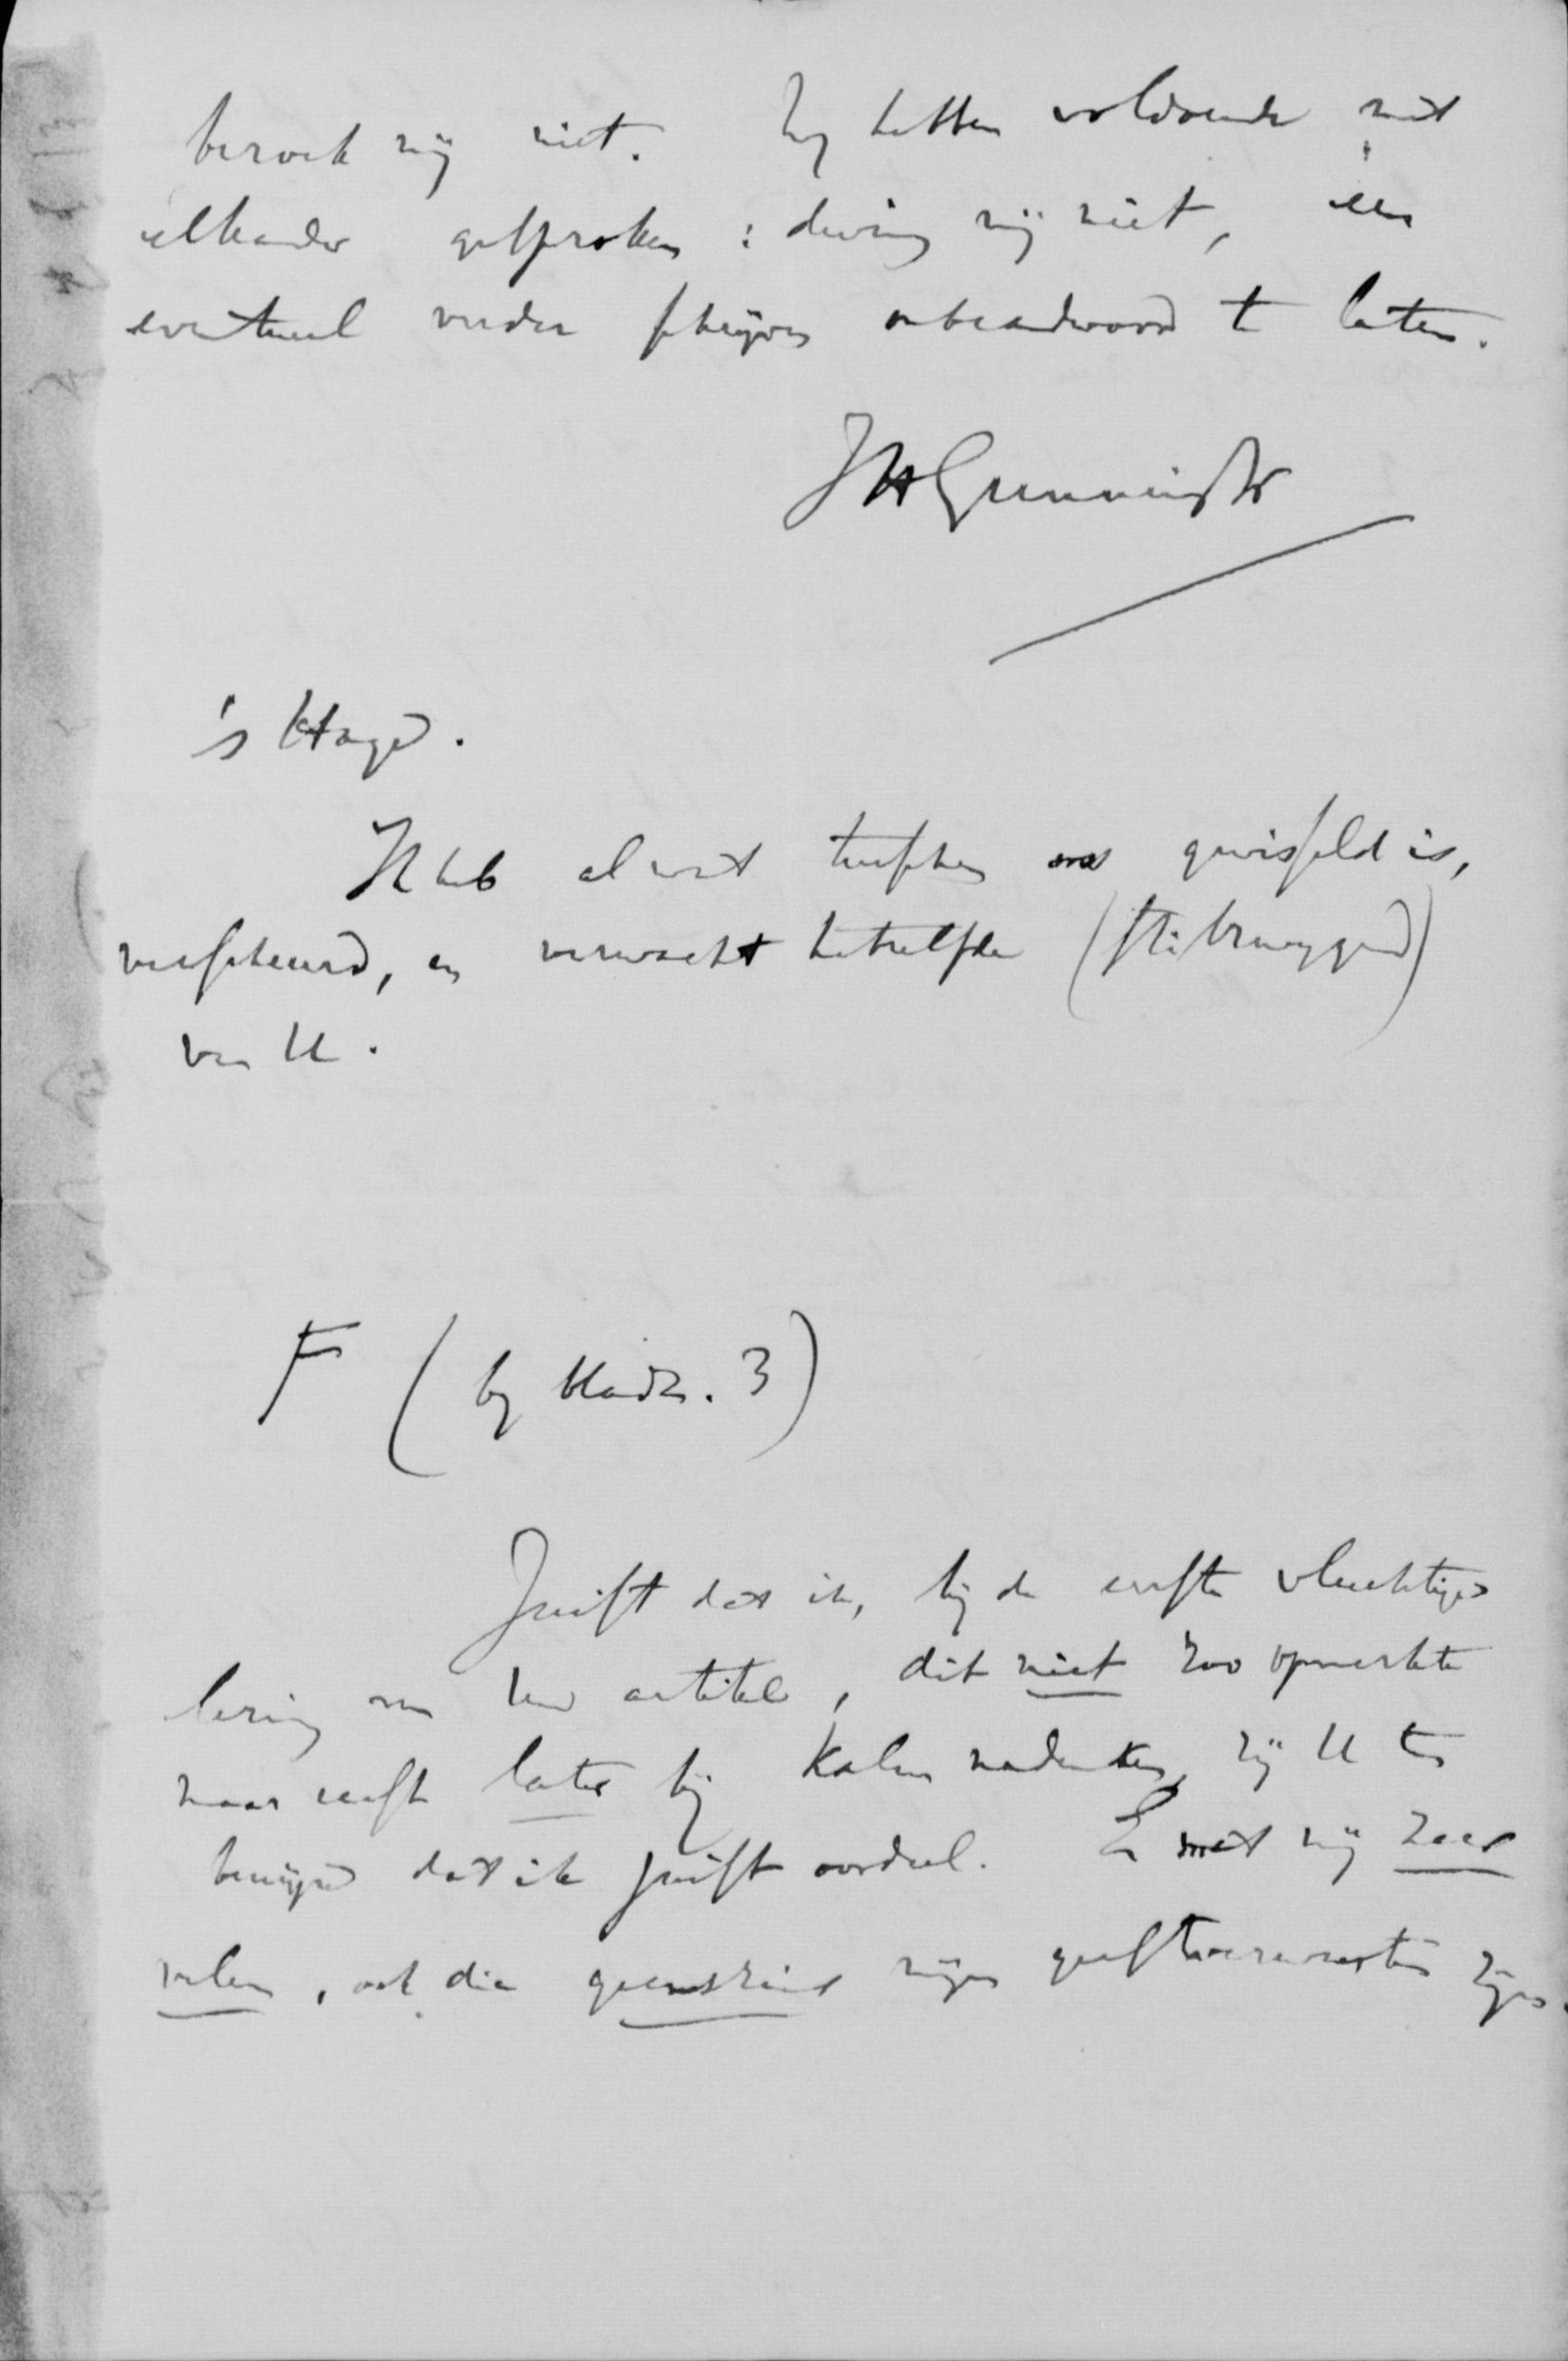 bezoek mij niet. Wy hebben voldoende met
elkander gesproken: dwing mij niet, een
eventueel verder schrijven onbeandwoord te laten.
JHGunning Jr
's Hage.
Ik heb al wat tusschen ons gewisseld is,
verscheurd, en verwacht hetzelfde (stilzwijgend)
van U.
F (by bladz. 3)
Juist dat ik, bij de eerste vluchtige
lezing van Uw artikel, dit niet zoo opmerkte
maar eerst later bij kalm nadenken, zij U ten
bewijze dat ik juist oordeel. En met mij zeer
velen, ook die geenszins mijn geestverwanten zijn.